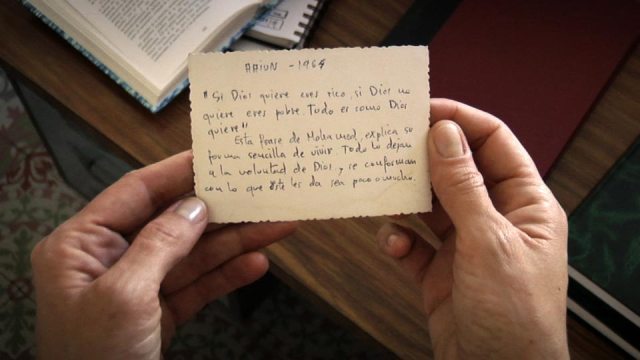 AAIUN - 1964
"Si Dios quiere eres rico, si Dios no
quiere eres pobre. Todo es como Dios
quiere"
Esta frase de Mohamed, explica su
forma sencilla de vivir. Todo lo dejan
a la voluntad de Dios y se conforman
con lo que éste les da sea poco o mucho.